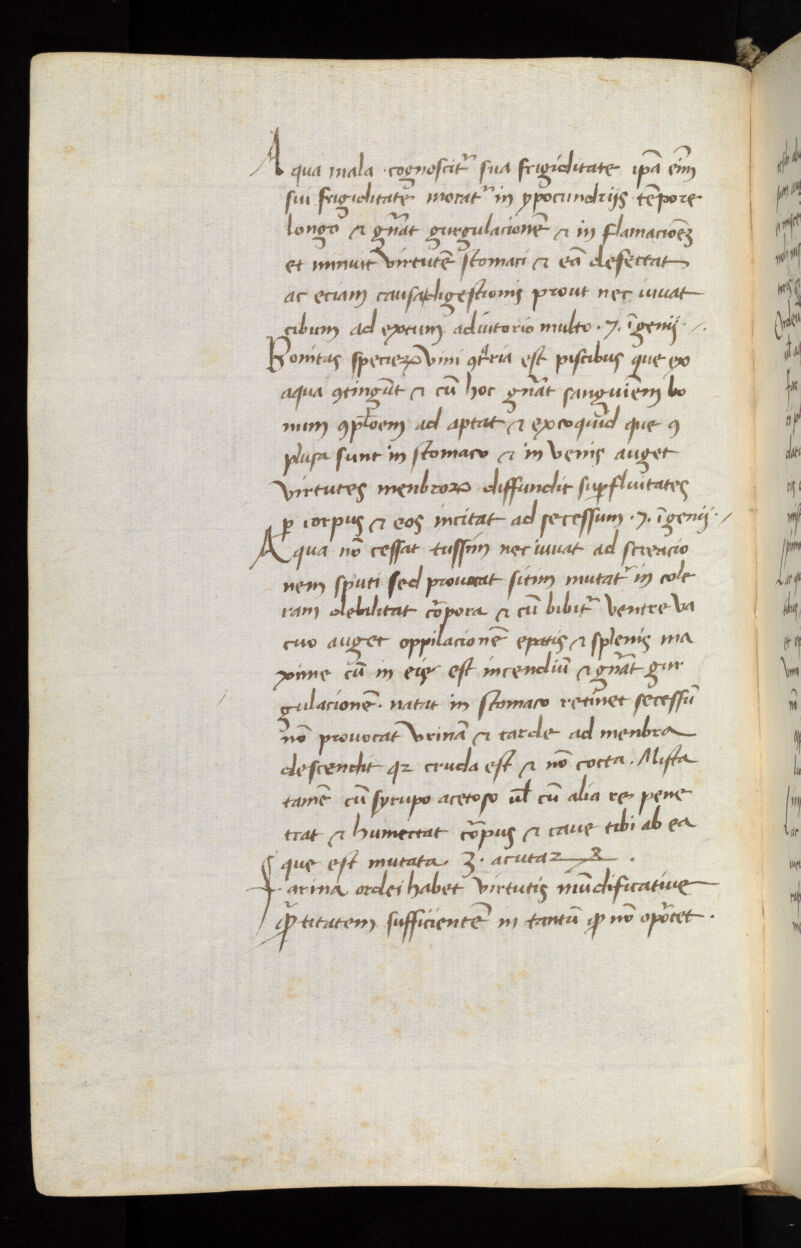 Aqua mala cognoscit᷑ sua frigiditate ip̄a eīm
sui frigiditate morat᷑ in ypocundrijs tēpore
longo ⁊ gn̄at gurgulacionē ⁊ in flamacioēꝫ
et minuit virtutē stomaci ⁊ eā defectat
ac eciam causa digestionis prout nec iuuat
cibum ad exitum adiutorio multo · 7. īgenij ·/.
Bonitas specieꝝ vini ꝯt̄ria est piscibus que ex
aqua ꝯtingūt ⁊ cū hoc gn̄at sanguiēm bo
num ꝯpl̄oem ad aptat ⁊ excoquid que ꝯ
plusa sunt in stomaco ⁊ in venis auget
virtutes menbroꝝ diffundit suꝑfluitates
ꝑ corpus ⁊ eos incitat ad secessum · 7. īgenij ·/
Aqua nō cessat tussim nec iuuat ad screacio
nem sputi sed prouocat sitim mutat᷑ in cole
ram debilitat cōrpora ⁊ cū bibit᷑ ventre va
cuo auget oppilacionē epatis ⁊ splenis ma
xime cū in eis est incendiū ⁊ gn̄at gur
gulacionē · natat in stomaco retinet secessū
nō prouocat vrinā ⁊ tarde ad menbra
descendit qꝛ cruda est ⁊ nō cocta . Mista
tamē cū syrupo acetoso ul̄ cū alia re pene
trat ⁊ humectat cōrpus ⁊ caue tibi ab ea
que est mutata . 3 . acutaꝝ
Farina ordei habet virtutis mūdificatiue
qn̄titatem sufficientē in tantū ꝙ nō oportet .